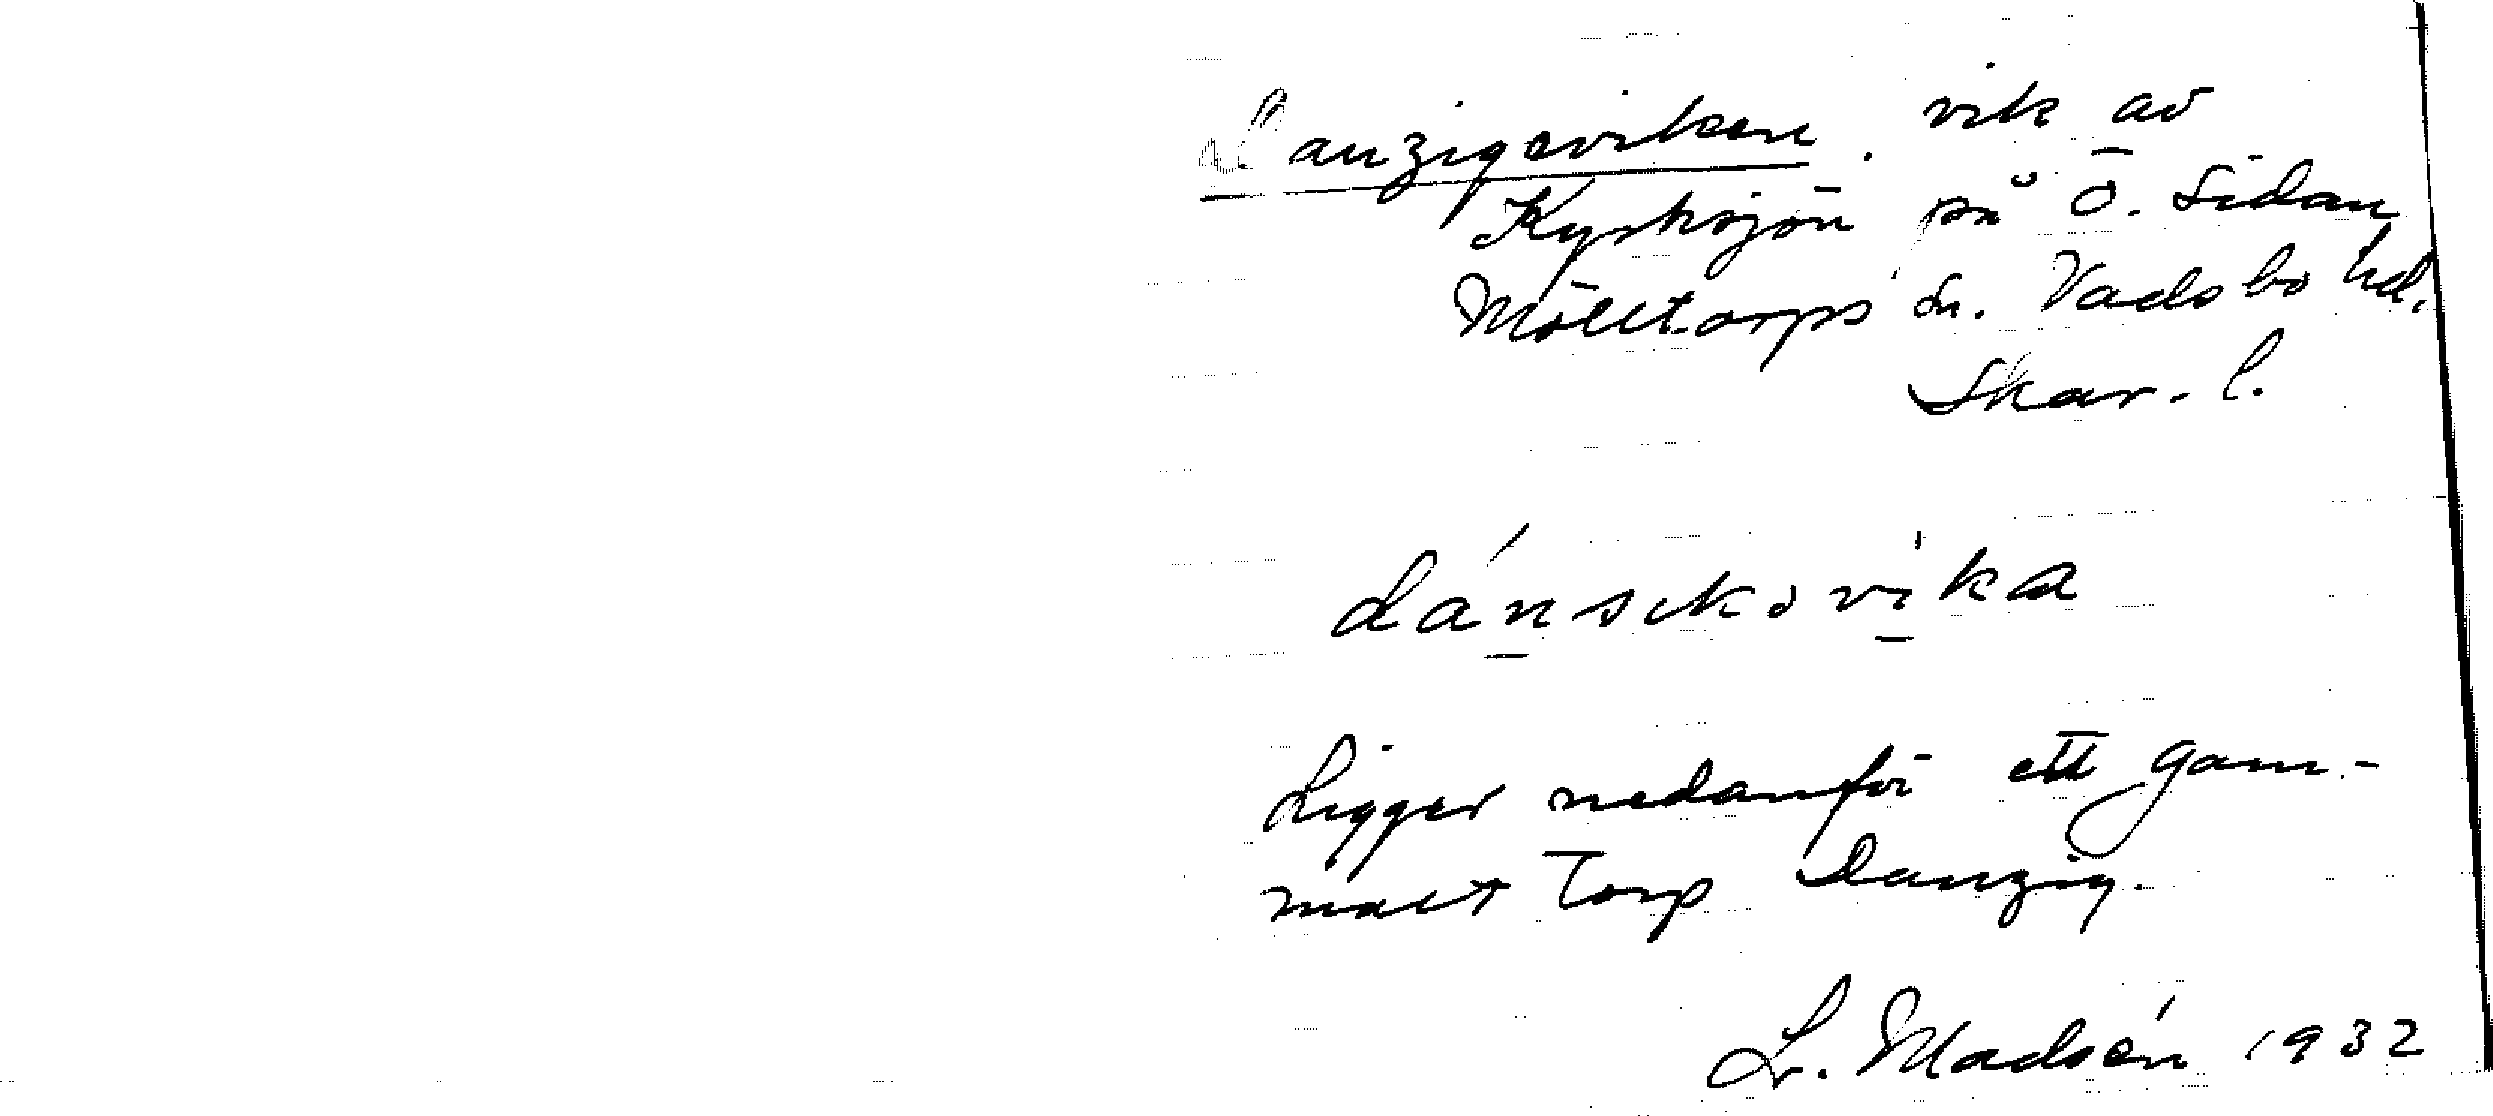 Danzigeviken. vik av
Kyrksjön på ö. sidan
Mölltorps sn. Vadsbo hd.
Skar. l.
dánsıkəvika
Ligger nedanför ett gam-
malt torp Danzig.
L. Madsén 1932